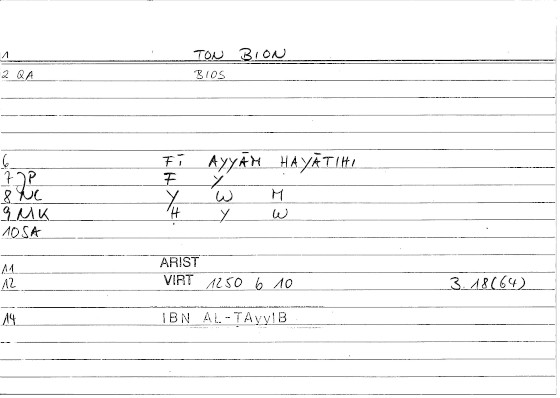 1 TON BION
2 QA BIOS
6 FĪ AYYĀM HAYĀTIHI
7 JP F Y
8 NC Y W M
9 MK H Y W
10 SA
11 ARIST
12 VIRT 1250 b 10 3.18(64)
14 IBN AL-ṬAyyIB